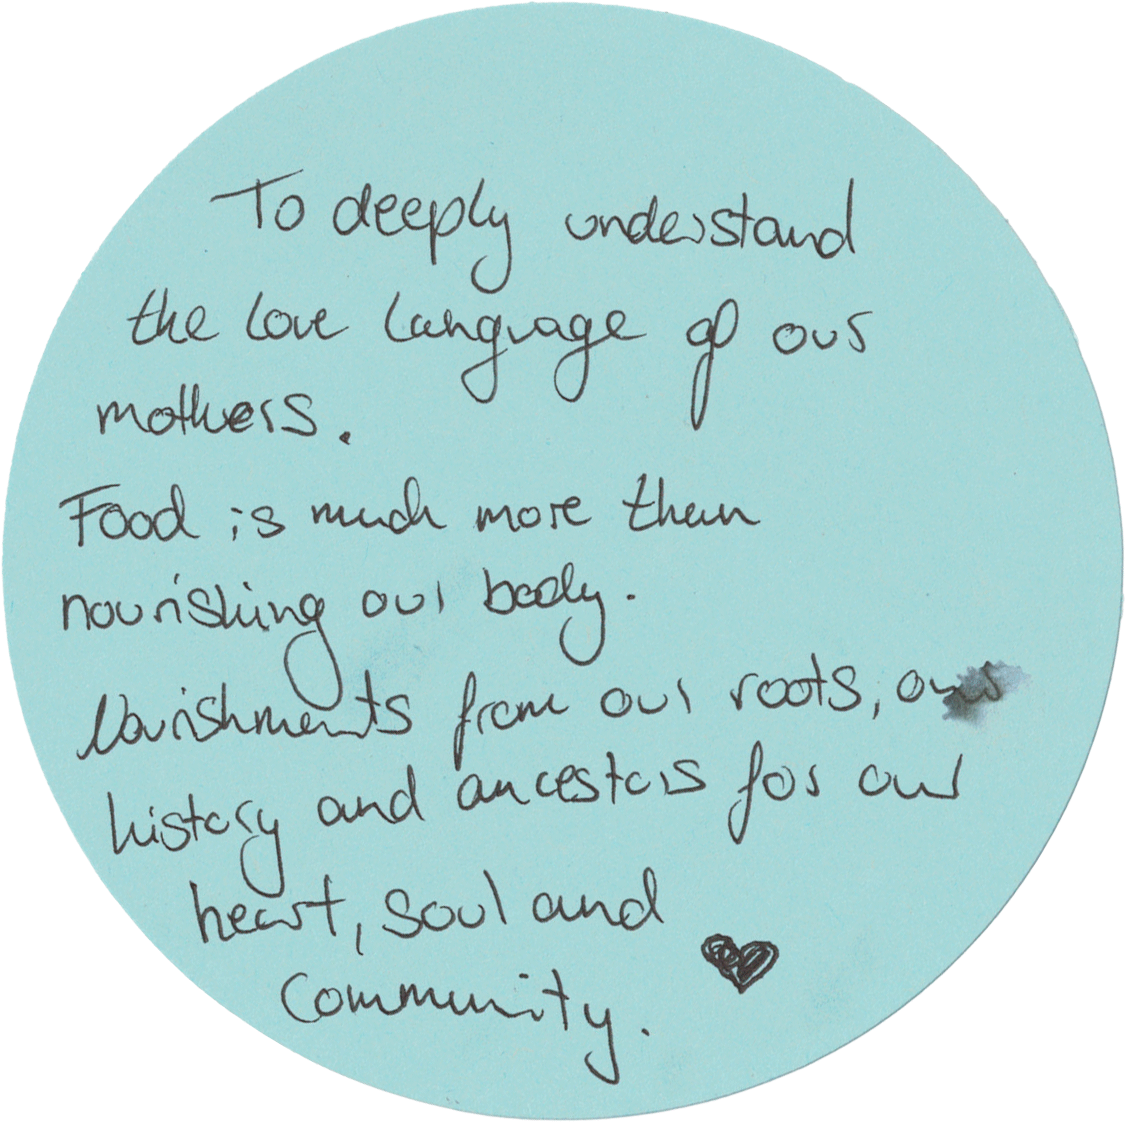 To deeply understand
the love language of our
mothers.
Food is much more than
nourishing our body.
Nourishments from our roots, our
history and ancestors for our
heart, soul and
community.